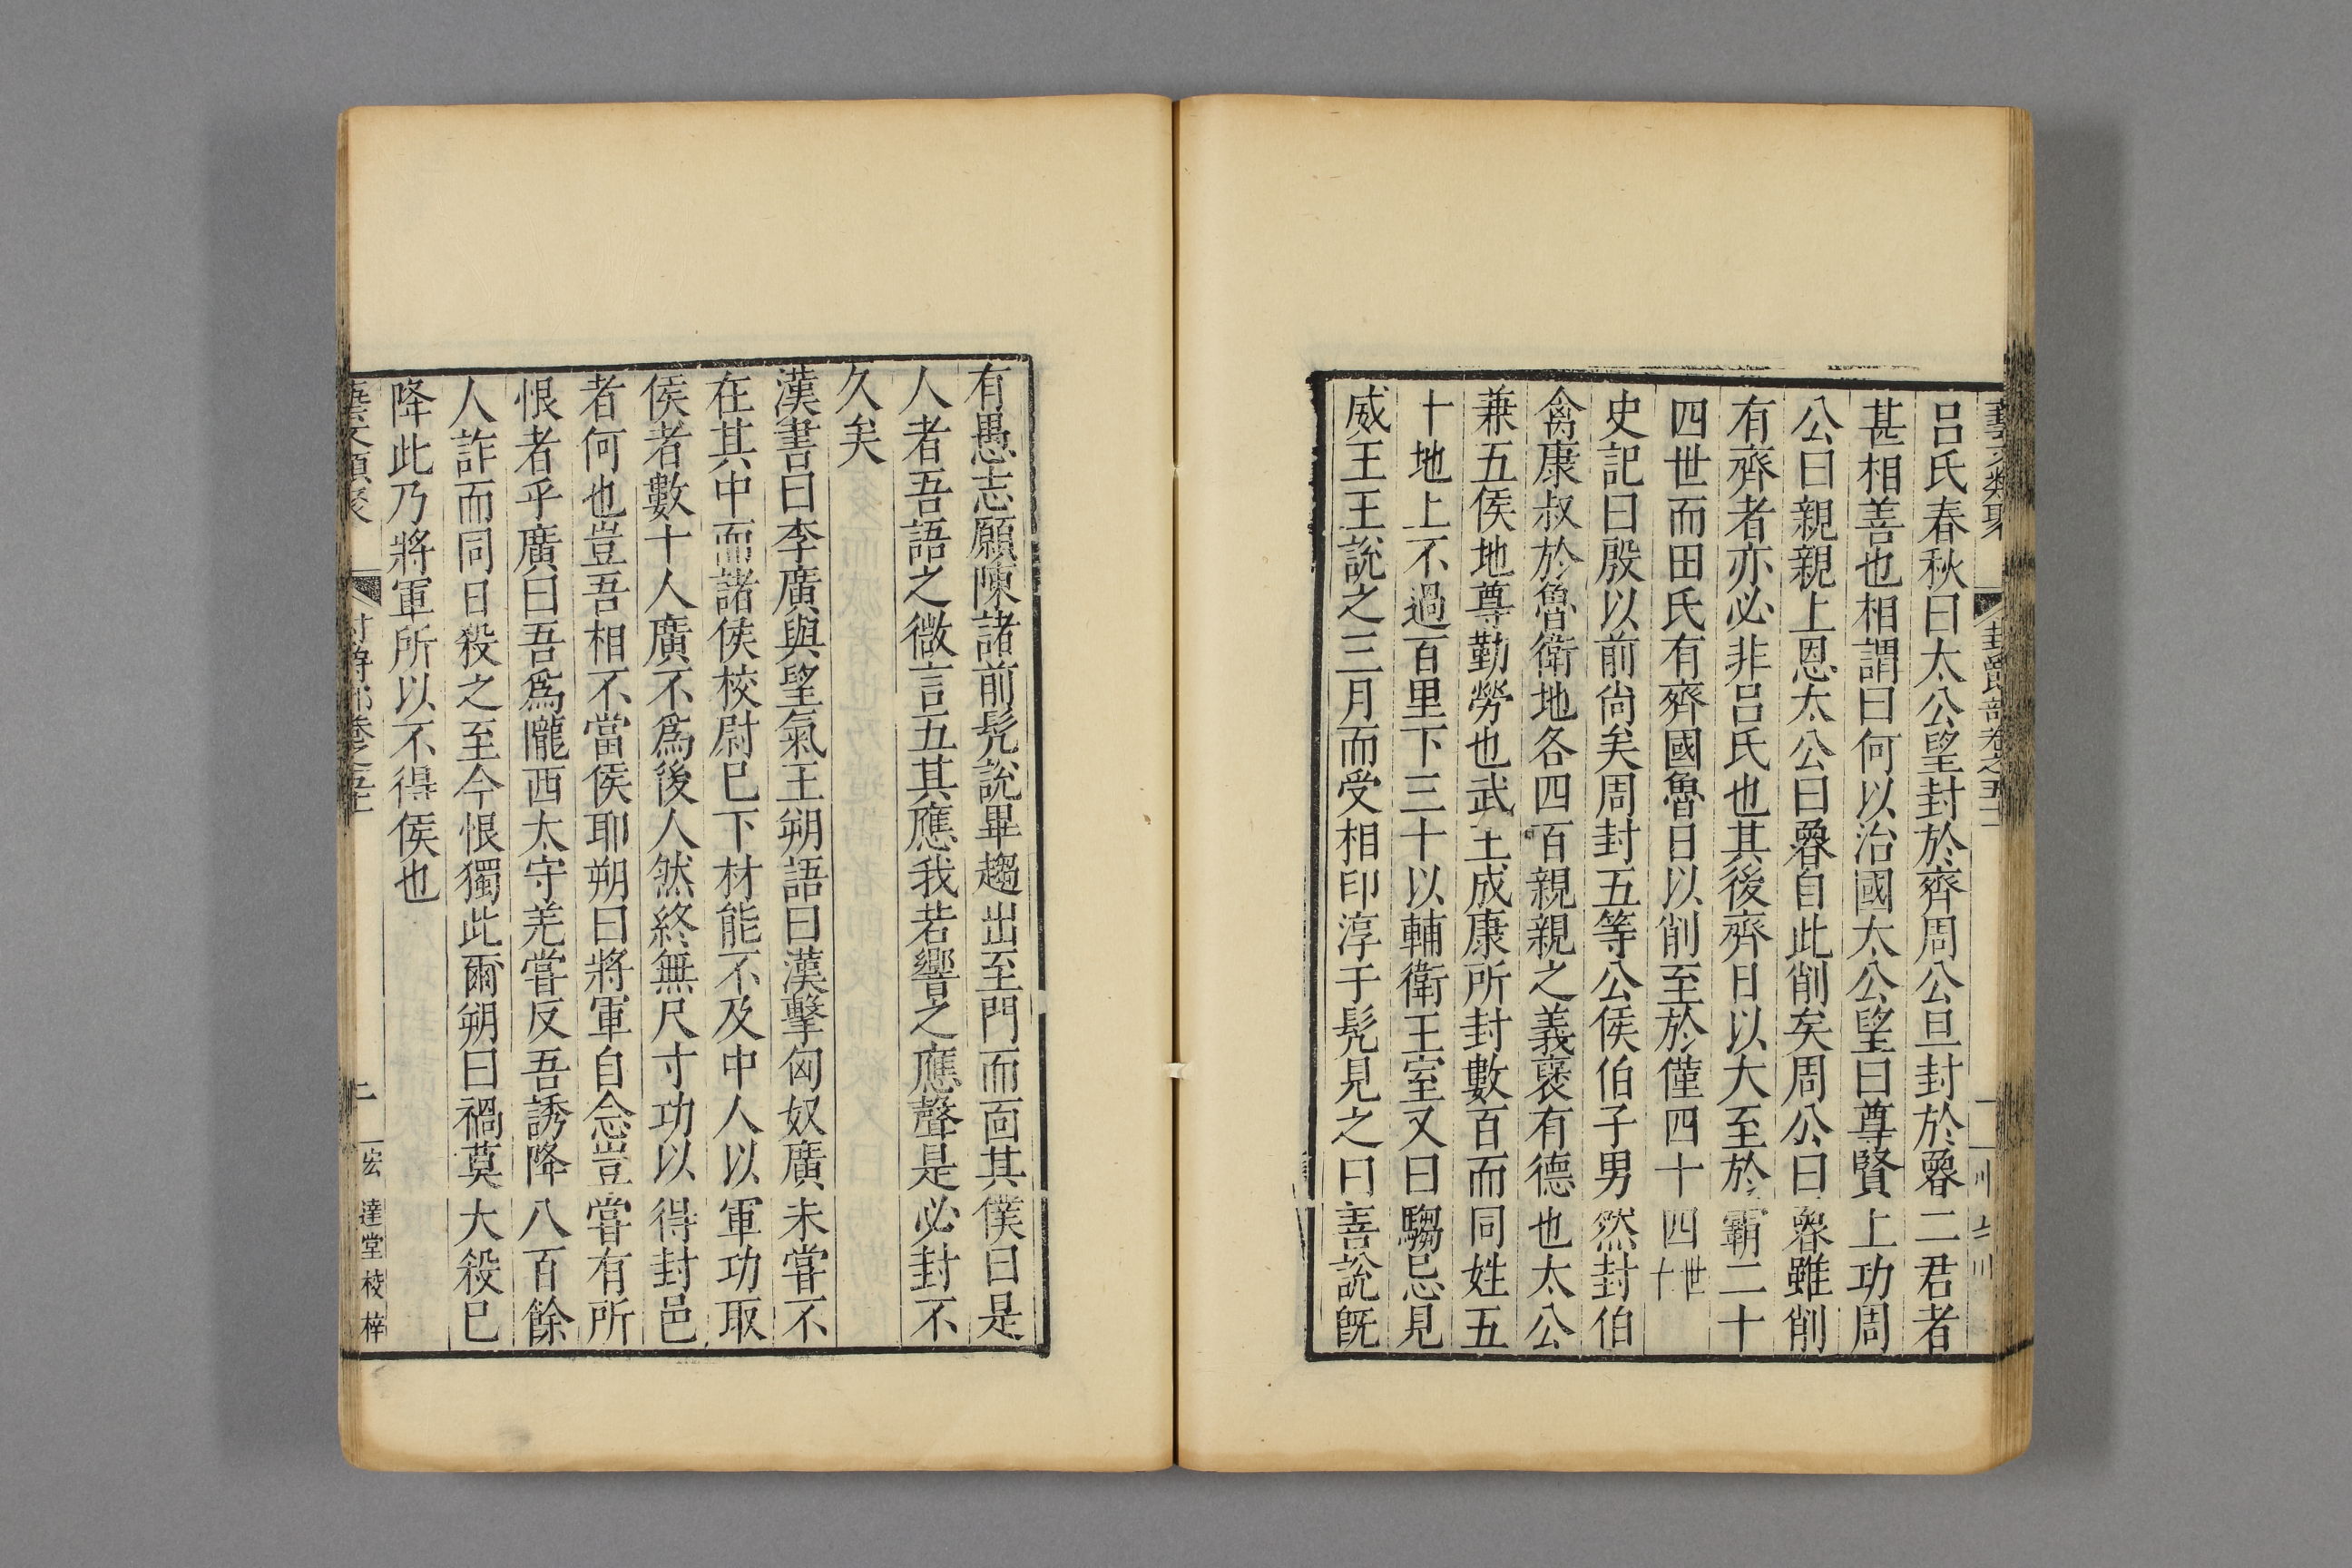 藝文類聚 封爵部卷之五十一
呂氏春秋曰太公望封於齊周公旦封於魯二君者
甚相善也相謂曰何以治國太公望曰尊賢上功周
公曰親親上恩太公曰魯自此削矣周公曰魯雖削
有齊者亦必非呂氏也其後齊日以大至於霸二十
四世而田氏有齊國魯日以削至於僅四十四世
史記曰殷以前尚矣周封五等公侯伯子男然封伯
禽康叔於魯衛地各四百親親之義襃有德也太公
兼五侯地尊勤勞也武王成康所封數百而同姓五
十地上不過百里下三十以輔衛王室又曰騶忌見
威王王說之三月而受相印淳于髡見之曰善說旣
有愚志願陳諸前髡說畢趨出至門而面其僕曰是
人者吾語之微言五其應我若響之應聲是必封不
久矣
漢書曰李廣與望氣王朔語曰漢擊匈奴廣未嘗不
在其中而諸侯校尉巳下材能不及中人以軍功取
侯者數十人廣不爲後人然終無尺寸功以得封邑
者何也豈吾相不當侯耶朔曰將軍自念豈嘗有所
恨者乎廣曰吾爲隴西太守羌嘗反吾誘降八百餘
人詐而同日殺之至今恨獨此爾朔曰禍莫大殺巳
降此乃將軍所以不得侯也
藝文類聚 封爵部卷之五十一 二 宏達堂校梓